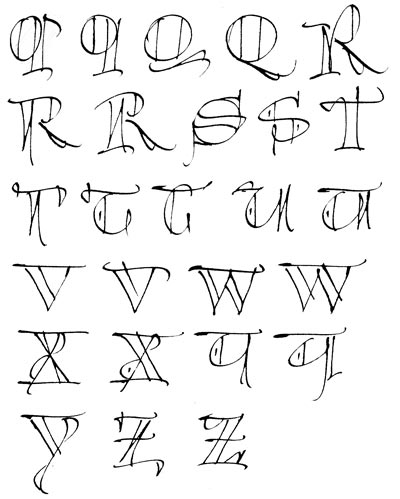 Q Q Q Q R
R R S S T
T T T U U
V V W W
X X Y Y
Y Z Z